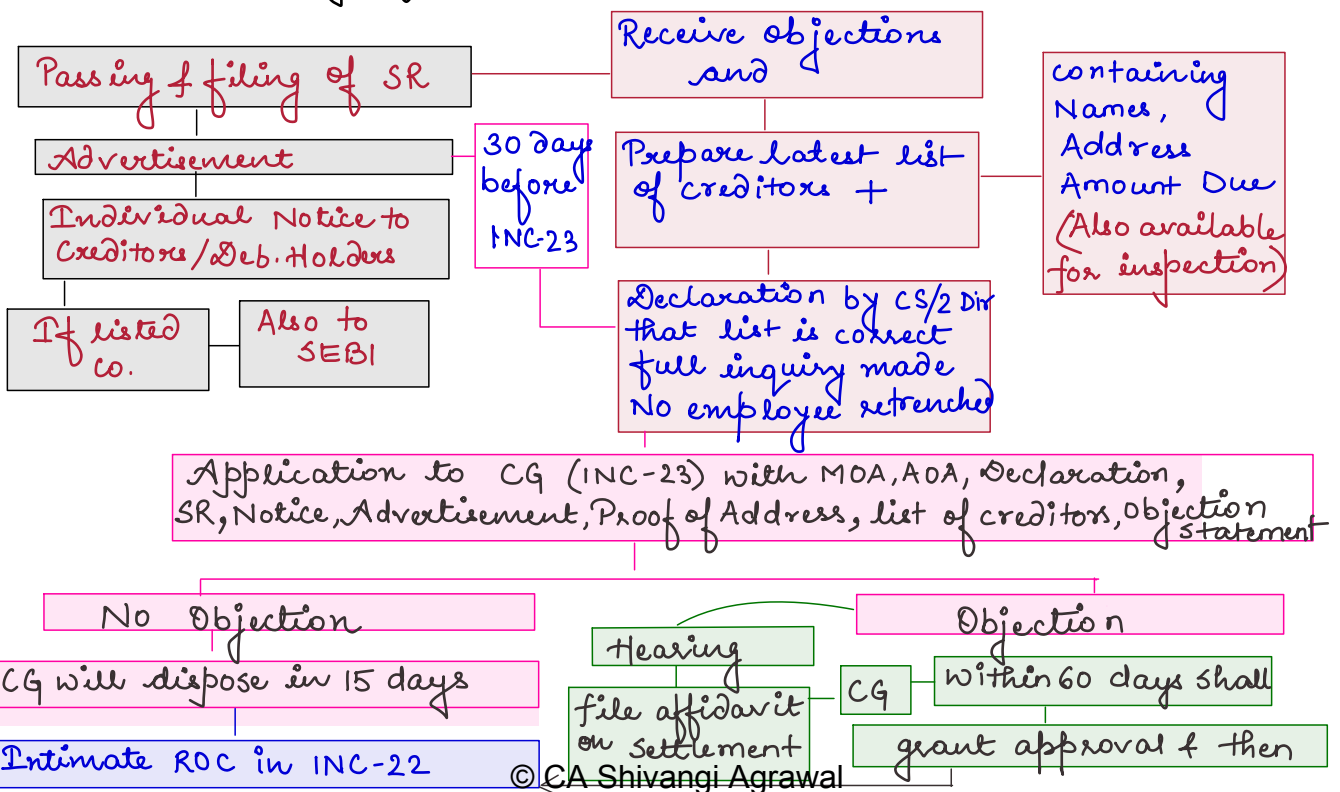 Passing & filing of SR
Advertisement
Individual Notice to
Creditors/Deb. Holders
If listed
co.
Also to
SEBI
30 days
before
INC-23
Receive objections
and
Prepare latest list
of creditors +
containing
Names,
Address
Amount Due
(Also available
for inspection)
Declaration by CS/2 Dir
that list is correct
full inquiry made
No employee retrenched
Application to CG (INC-23) with MOA, AOA, Declaration,
SR, Notice, Advertisement, Proof of Address, list of creditors, Objection
statement
No Objection
CG will dispose in 15 days
Intimate ROC in INC-22
Objection
Hearing
file affidavit
on settlement
CG
within 60 days shall
grant approval & then
© CA Shivangi Agrawal